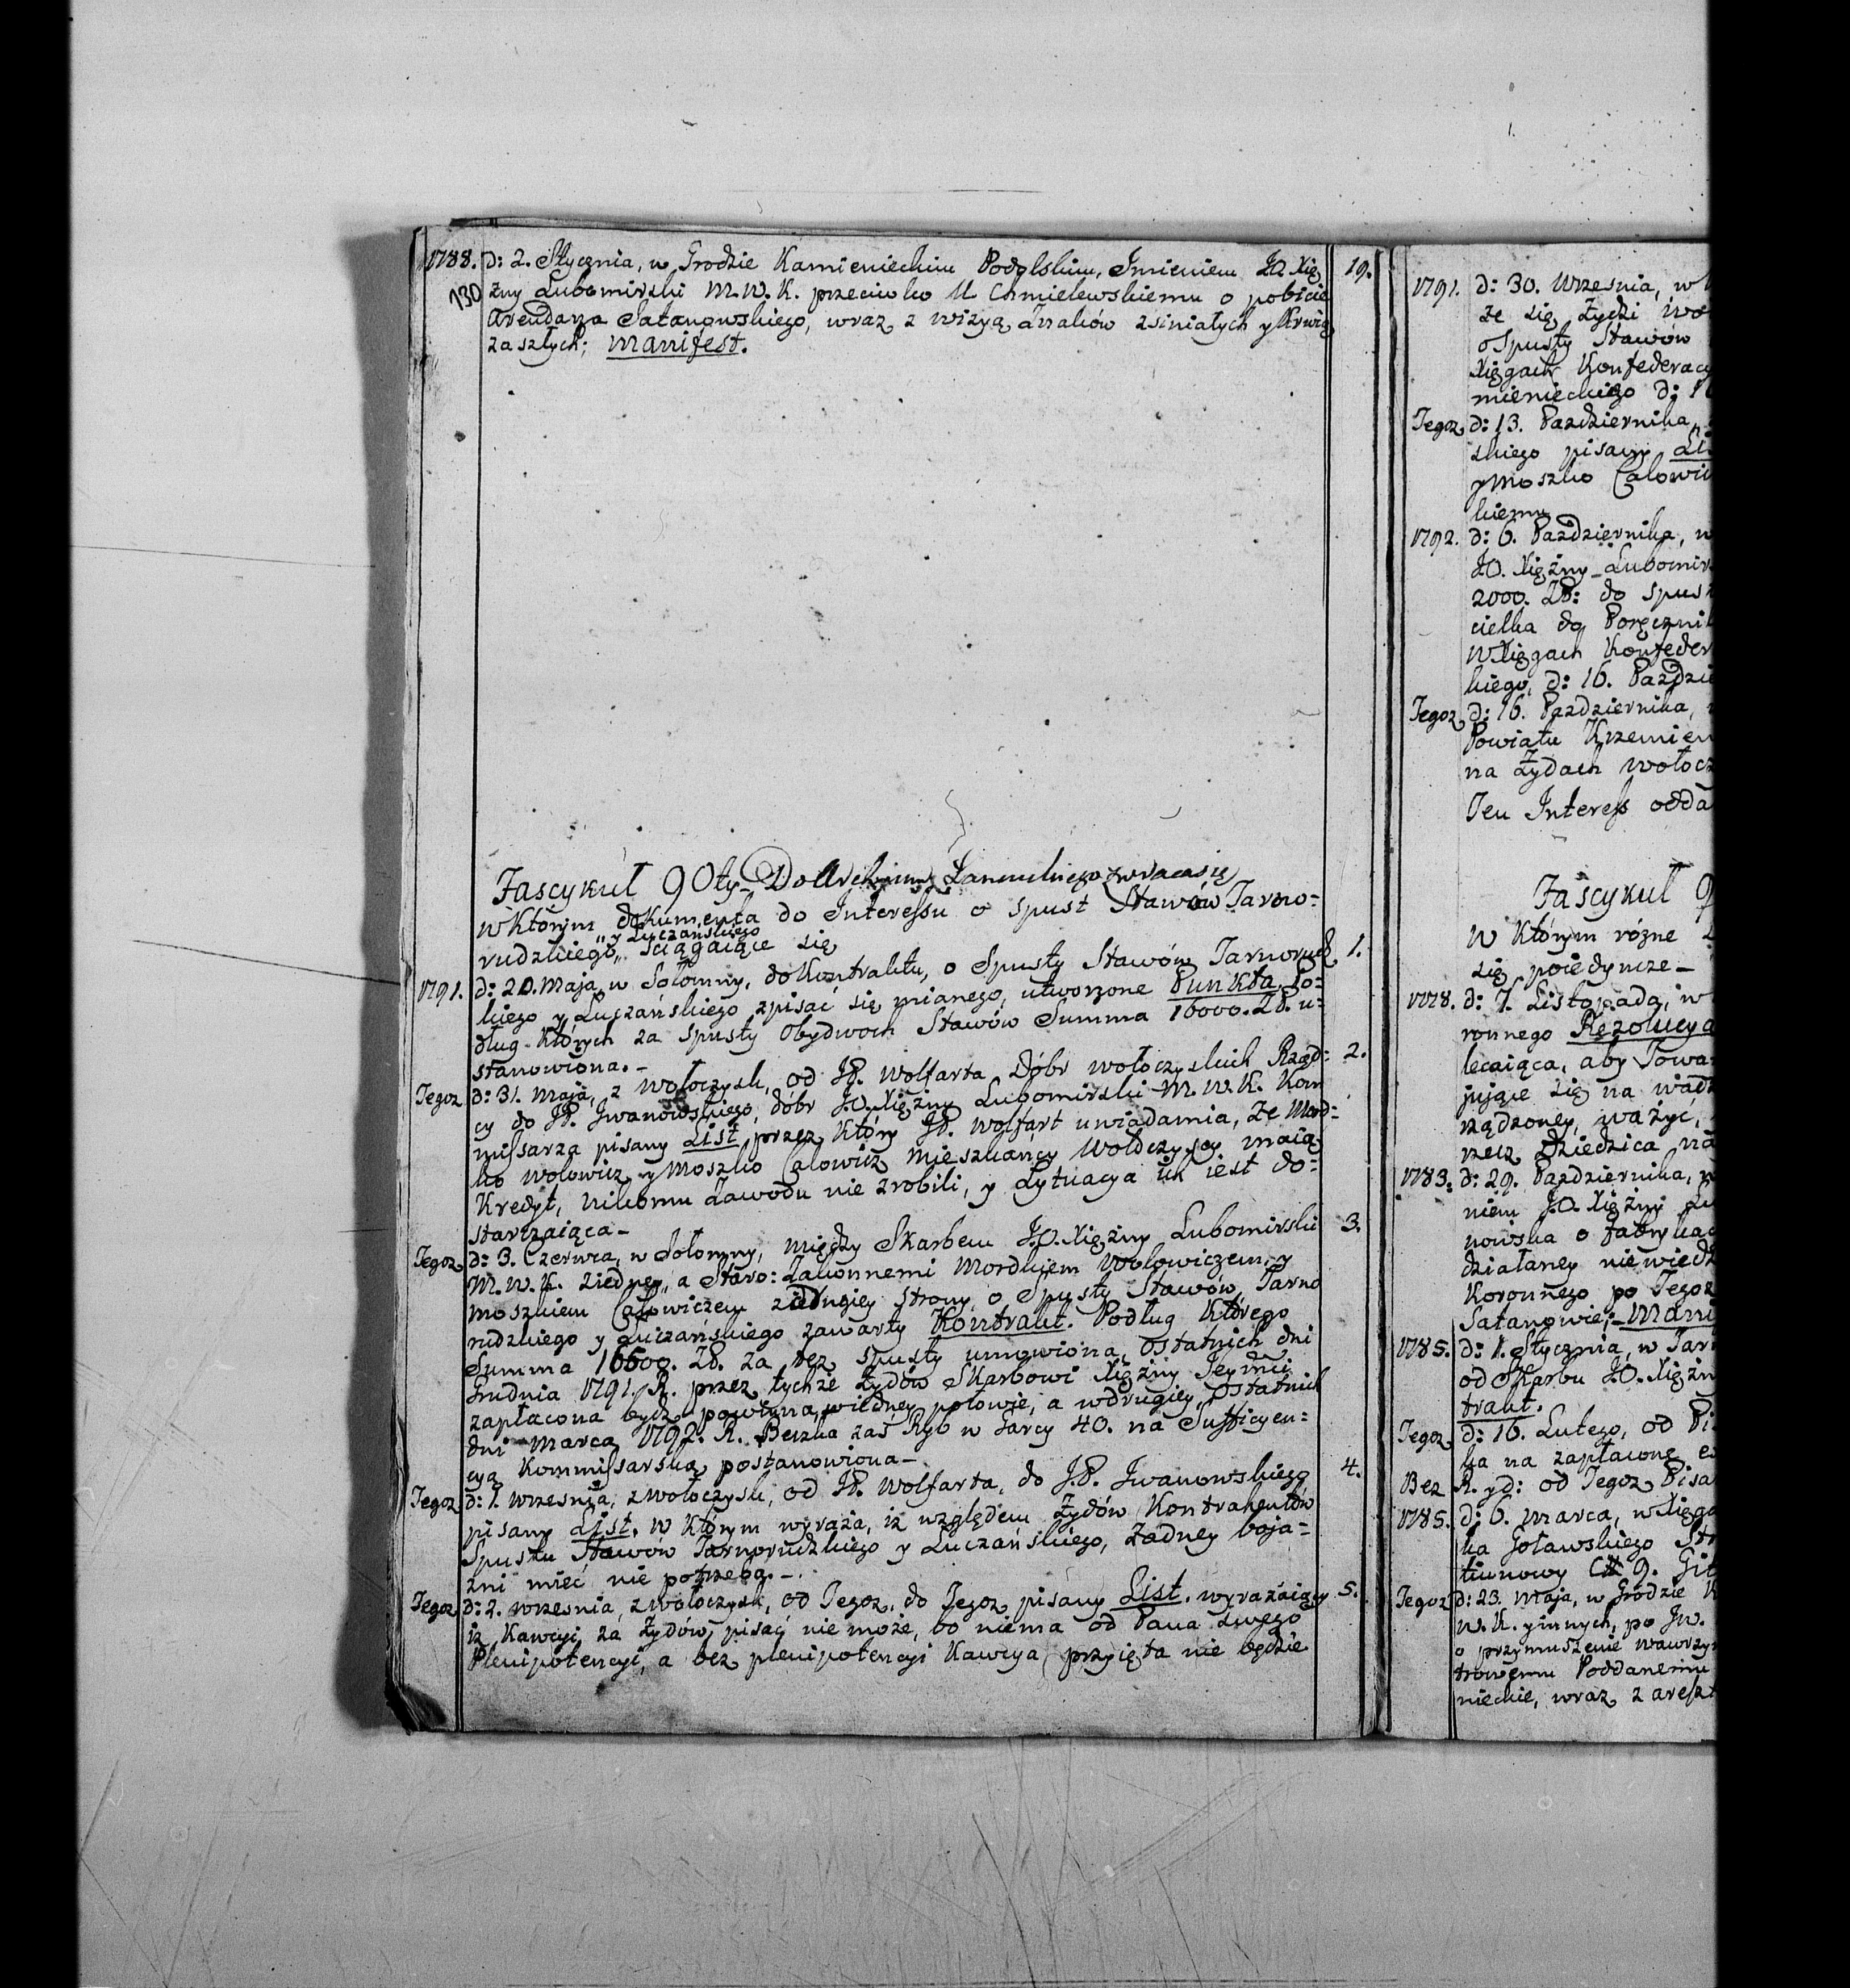 1788. d: 2. Stycznia, w Grodzie Kamienieckim Podolskim, Imieniem JO. Xię 19.
130 żny Lubomirski M.W.K. przeciwko U Chmielewskiemu o pobicie
Arendarza Satanowskiego, wraz z wizyą znaków zsiniałych y krwią
zaszłych; Manifest.
Fascykuł 90ty Do Archiwum zwraca się
w Którym dokumenta do Interessu o spust Stawów Tarno=
rudzkiego „y Łuczańskiego„ ściągaiące się
1791. d: 20. Maja w Sołomny, do Kontraktu, o Spusty Stawów Tarnorudz 1.
kiego y Łuczańskiego zpisać się mianego, utworzone Punkta. Po=
dług których za spusty obydwoch Stawów Summa 16000. Zł. u=
stanowiona.–
Tegoż d: 31. Maja, z Wołoczysk, od JP. Wolfarta Dóbr wołoczyskich Rząd= 2.
cy do JP. Iwanowskiego, dóbr J.O. Xiężny Lubomirski M.W.K. Kom
missarza pisany List, przez który JP. Wolfart uwiadamia, że Mord=
ko Wolowicz y Moszko Calowicz mieszkańcy Wołoczyscy maią
Kredyt, nikomu Zawodu nie zrobili, y Sytuacya ich iest do=
starczaiąca–
Tegoż d: 3. Czerwca, w Sołomny, między Skarbem J.O. Xiężny Lubomirski 3.
M.W.K. ziedney, a Staro: Zakonnemi Mordkiem Wolowiczem, y
Moszkiem Calowiczem z drugiey strony, o Spusty Stawów Tarno
rudzkiego y Łuczańskiego zawarty Kontrakt. Podług którego
Summa 16600. Zł. za też spusty umowiona, ostatnich dni
Grudnia 1791. R. przez tychże Żydów Skarbowi Xiężny Jeymci
zapłacona bydź powinna, wiedney połowie, a wdrugiey, ostatnich
dni Marca 1792. R. Beczka zaś Ryb w Garcy 40. na Sufficyen=
cyą Kommissarską postanowiona–
Tegoż d: 1. Wrzesnia, z Wołoczysk, od JP. Wolfarta, do J.P. Iwanowskiego 4.
pisany List. w Którym wyraża, iż względem Żydów Kontrahentów
Spustu Stawów Tarnorudzkiego y Łuczańskiego, żadney boja=
zni mieć nie potrzeba.–
Tegoż d: 2. Wrzesnia, z Wołoczysk, od Tegoż, do Tegoż pisany List, wyrażaiący 5.
iż Kawcyi za Żydów, pisać nie może, bo niema od Pana swego
Plenipotencyi, a bez plenipotencyi Kawcya przyięta nie będzie
1791. d: 30. Wrzesnia, w
że się Żydki
o Spusty Stawów
Xięgach Konfederacy
mienieckiego d:
Tegoż d: 13. Października,
skiego pisany
y Moszko Calowi
kiemu
1792. d: 6. Października, w
J.O. Xiężny Lubomir
2000. Zł: do spus
cielka do Poręcznik
W Xięgach Konfeder
kiego, d: 16. Paździe
Tegoż d: 16. Października,
Powiatu Krzemien
na Żydach Wołocz
Ten Interess odda
Fascykuł 9
W Którym rózne
się poiedyncze–
1778. d: 7. Listopada, w
ronnego Rezolucya
lecaiąca, aby Towar
jujące się na
rządzoney, ważyć,
rzecz Dziedzica na
1783. d: 29. Października, w
niem J.O. Xiężny Lu
nowska o fabryka
działaney niewiedz
Koronnego po Tegoż
Satanowie;– Mani
1785. d: 1. Stycznia, w Tar
od Skarbu J.O. Xiężn
trakt.
Tegoż d: 16. Lutego, od Pi
ka na zapłacone
Bez R. y d: od Tegoż Pisa
1785. d: 6. Marca, w Xięga
ka Goławskiego
9.
Tegoż d: 23. Maja, w Grodzie K
W.K. y innych, po Jw.
o przymuszenie Wawrzy
trowemu Poddanemu
nieckie, wraz z areszt